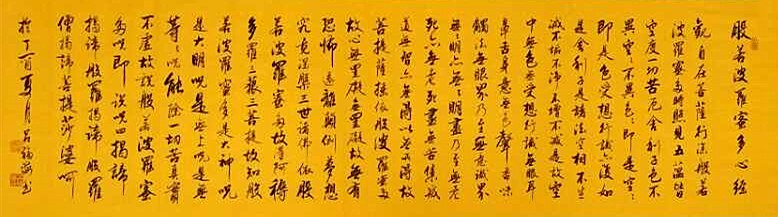 般若波羅蜜多心经
觀自在菩薩行深般若
波羅蜜多時照見五蕴皆
空度一切苦厄舍利子色不
異空空不異色色即是空空
即是色受想行識亦復如
是舍利子是諸法空相不生
滅不垢不净不增不减是故空
中無色無受想行識無眼耳
鼻舌身意無色聲香味
觸法無眼界乃至無意識界
無無明亦無無明盡乃至無老
死亦無老死盡無苦集滅
道無智亦無得以無所得故
菩提薩埵依般若波羅蜜多
故心無罣礙無罣礙故無有
恐怖遠離顛倒夢想
究竟涅槃三世諸佛依般
若波羅蜜多故得阿耨
多羅三藐三菩提故知般
若波羅蜜多是大神呪
是大明呪是無上呪是無
等等呪能除一切苦真實
不虚故説般若波羅蜜
多呪即説呪曰揭諦
揭諦般羅揭諦般羅
僧揭諦菩提莎婆呵
於丁酉夏月